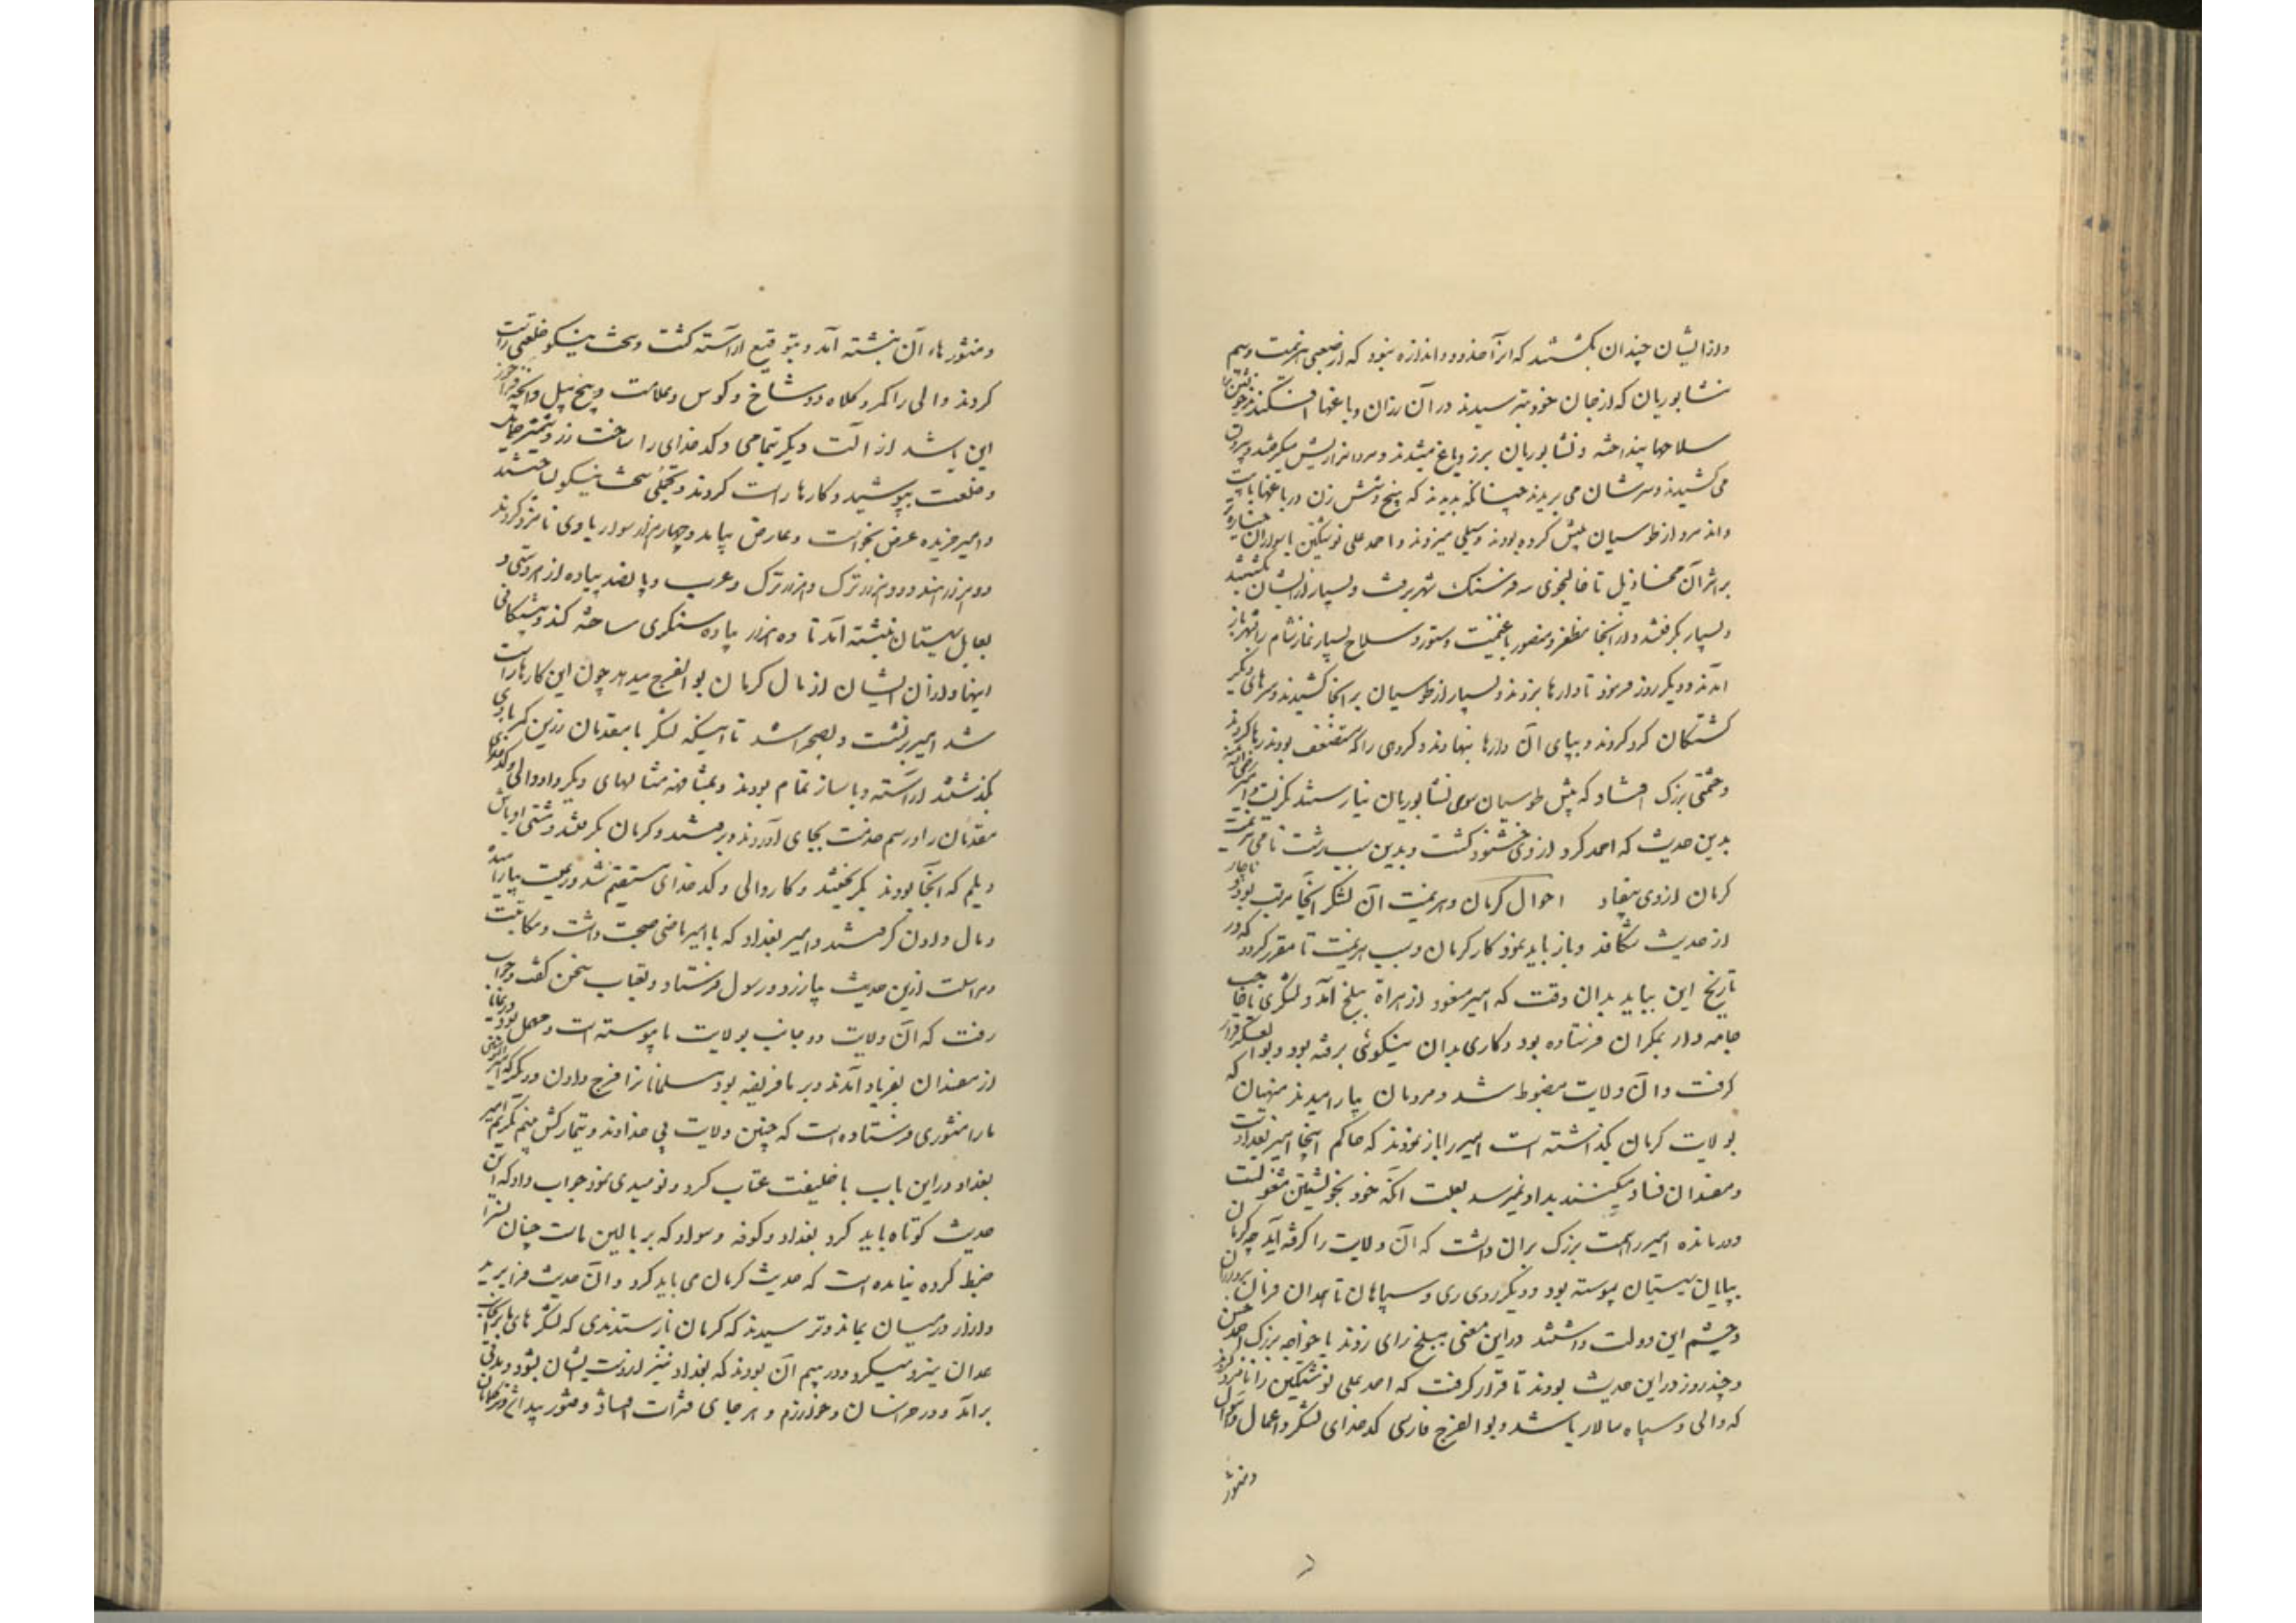 و از ایشان چندان بکشتند که آنرا حد و اندازه نبود که از صعبی هزیمت و بیم
نشابوریان که از جان خود بترسیدند در آن رزان و باغها افکندند خویشتن را
سلاحها بینداخته و نشابوریان برز و باغ میشدند و مردانرا ریش میگرفتند و بیرون
می کشیدند و سرشان می بریدند چنانکه بدیدند که پنج و شش زن در باغها بیست
و اند مرد از طوسیان پیش کرده بودند و سیلی میزدند و احمد علی نوشتکین با سواران
بر اثر آن مخاذیل تا خالنجوی سه فرسنگ شهر برفت و بسیار از ایشان بکشتند
و بسیار بگرفتند و از آنجا مظفر و منصور با غنیمت و ستور و سلاح بسیار نماز شام را بشهر باز
آمدند و دیگر روز فرمود تا دارها بزدند و بسیار از طوسیان بر آنجا کشیدند و سرهای دیگر
کشتگان گرد کردند و بپای آن دارها بنهادند و گروهی را که مستضعف بودند رها کردند
و حشمتی بزرگ افتاد که بیش طوسیان سوی نشابوریان نیارستند نگریست و امیر
بدین حدیث که احمد کرد از وی خشنود گشت و بدین سبب زشت نامی هزیمت
کرمان از وی بیفتاد احوال کرمان و هزیمت آن لشکر آنجا مرتب بود ناچار
از حدیث شکافد و باز باید نمود کار کرمان و سبب هزیمت تا مقرر گردد که در
تاریخ این بباید بدان وقت که امیر مسعود از هراة ببلخ آمد و لشکری با حاجب
جامه دار بمکران فرستاده بود و کاری بدان نیکوئی برفته بود و بوالعسکر قرار
گرفت و آن ولایت مضبوط شد و مردمان بیارامیدند منهیان که
بولایت کرمان بگذاشته است امیر را باز نمودند که حاکم اینجا امیر بغدادست
و مفسدان فساد میکنند بداد نمیرسد بعلت آنکه خود بخویشتن مشغولست
و درمانده امیر را همت بزرگ بران داشت که آن ولایت را گرفته آید چه کرمان
بپایان سیستان پیوسته بود و دیگر روی ری و سپاهان تا همدان فرمان برداران
و حشم این دولت داشتند در این معنی ببلخ رای زدند با خواجه بزرگ احمد حسن
و چند روز در این حدیث بودند تا قرار گرفت که احمد علی نوشتکین را نامزد کردند
که والی و سپاه سالار باشد و بوالفرج فارسی کدخدای لشکر و اعمال و اموال
و منشور
و منشورهاء آن نبشته آمد و بتوقیع آراسته گشت و سخت نیکو خلعتی راست
کردند والی را کمر و کلاه دوشاخ و کوس و علامت و پنج پیل و آنچه فراخور
این باشد از آلت دیگر بتمامی و کدخدای را ساخت زر و شمشیر حمایل
و خلعت بپوشید و کارها راست کردند و تجملی سخت نیکو ساختند
و امیر جریده عرض بخواست و عارض بیامد و چهار هزار سوار با وی نامزد کردند
دو هزار هندو و دو هزار ترک و هزار ترک و عرب و پانصد پیاده از هر دستی و
بعامل سیستان نبشته آمد تا دو هزار پیاده سگزی ساخته کند و بیستگانی
اینها و از آن ایشان از مال کرمان بوالفرج میدهد چون این کارها راست
شد امیر برنشست و بصحرا شد تا اینکه لشکر با مقدمان زرین کمر با وی
بگذشتند آراسته و با ساز تمام بودند و بمشافهه مثالهای دیگر داد والی و کدخدای و
مقدمان را و رسم خدمت بجای آوردند و برفتند و کرمان بگرفتند و مشتی اوباش
دیلم که آنجا بودند بگریختند و کار والی و کدخدای مستقیم شد و رعیت بیارامید
و مال دادن گرفتند و امیر بغداد که با امیر ماضی صحبت داشت و مکاتبت
و مراسلت ازین حدیث بیازرد و رسول فرستاد و بعتاب سخن گفت و جواب
رفت که آن ولایت دو جانب بولایت ما پیوسته است و مهمل بود و رعایا
از مفسدان بفریاد آمدند و بر ما فریضه بود مسلمانانرا فرج دادن و دیگر که امیر المؤمنین
ما را منشوری فرستاده است که چنین ولایت بی خداوند و تیمارکش بینیم بگیریم امیر
بغداد در این باب با خلیفت عتاب کرد و نومیدی نمود جواب داد که این
حدیث کوتاه باید کرد بغداد و کوفه و سواد که بر بالین ماست چنان بسزا
ضبط کرده نیامده است که حدیث کرمان می باید کرد و آن حدیث فرا برید
و آزار در میان بماند و ترسیدند که کرمان باز ستدندی که لشکرهای ما بر آنجانب
همدان نیرو میکرد و در بیم آن بودند که بغداد نیز از دست ایشان بشود و مدتی
برآمد و در خراسان و خوارزم و هر جای فترات افتاد و فتور پیدا شد و ترکمانان